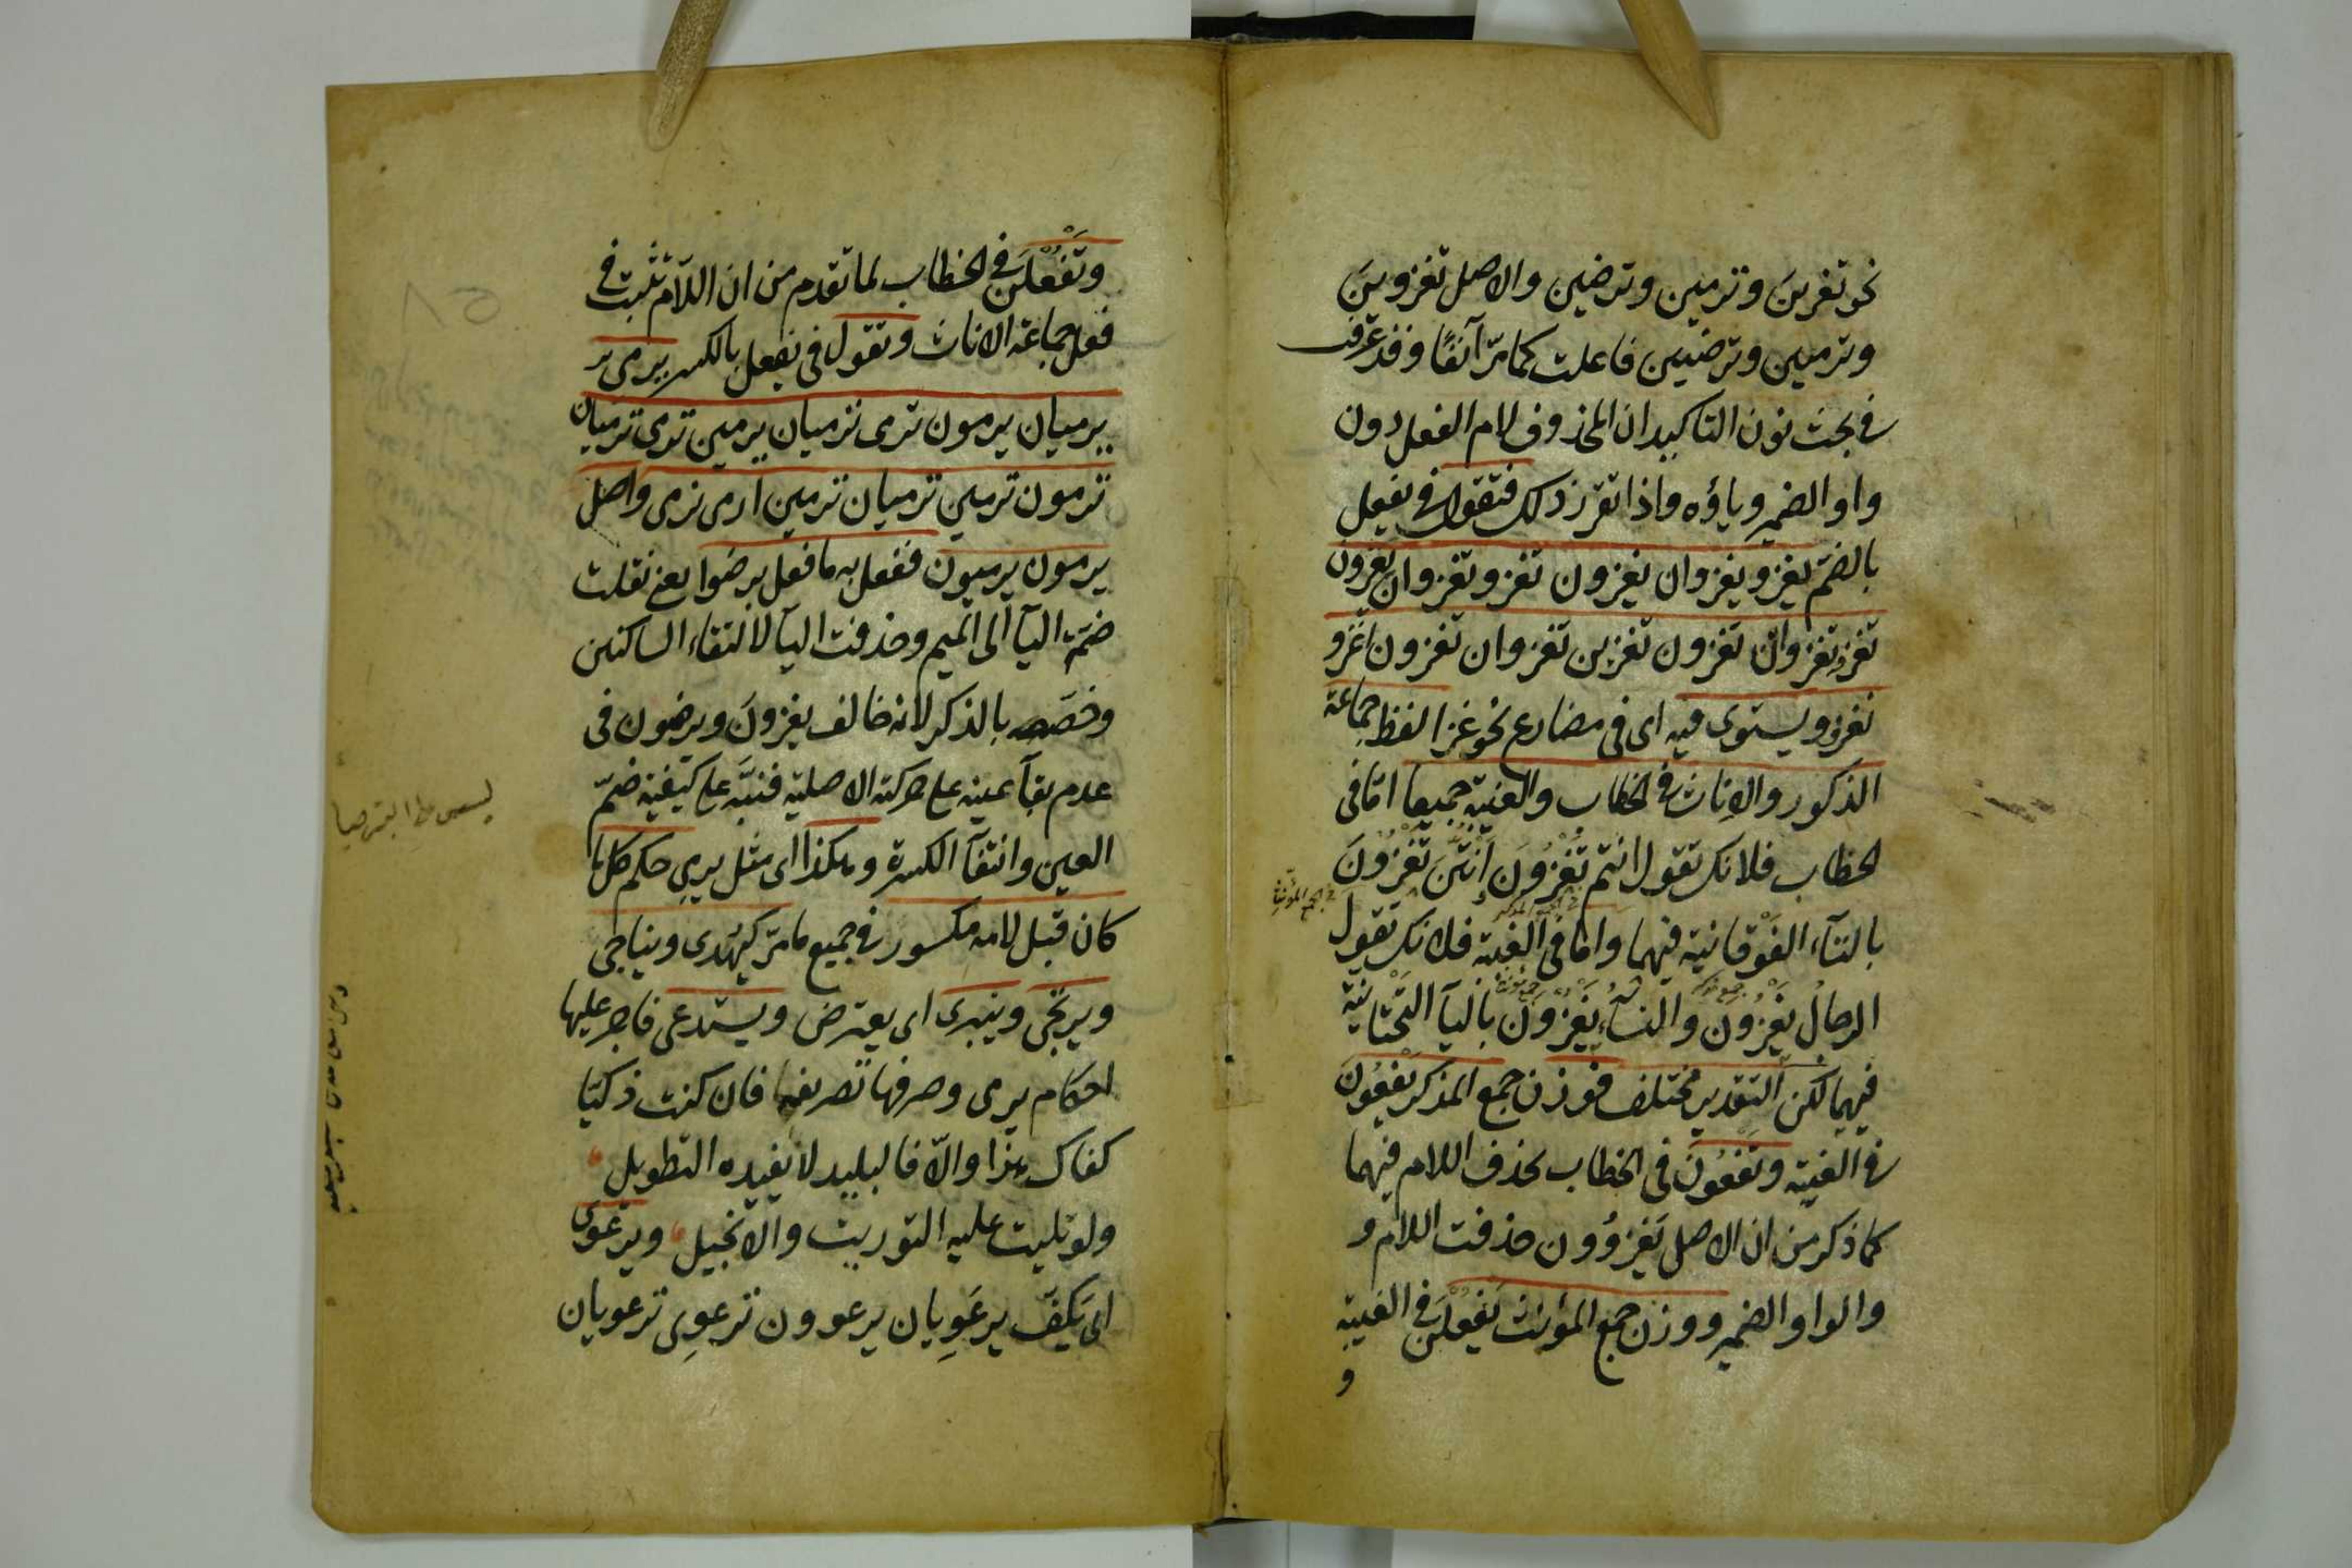 نحو تغزينَ وترمين وترضين والاصل تغزوينَ
وترميين وترضيين فاعلت كما مرّ آنفًا وقد عرفت
فى بحث نون التاكيد ان المحذوف لام الفعل دون
واو الضمير وياؤه واذا تقرّر ذلك فتقول فى يفعل
بالضمّ يغزو يغزوان يغزون تغزو تغزوان يغزون
تغزو تغزوان تغزون تغزين تغزوان تغزون اغزو
نغزو ويستوى فيه اى فى مضارع نحو غزا لفظ جماعة
الذكور والاناث فى الخطاب والغيبة جميعا امّا فى
الخطاب فلانك تقول انتم تَغْزُونَ اَنْتُنَّ تَغْزُونَ
فى جمع المذكر
فى جمع المؤنث
بالتآء الفَوْقانية فيهما وامّا فى الغيبة فلانك تقول
جمع مذكر
جمع مؤنث
الرجالُ يَغْزُونَ والنساءُ يَغْزُونَ باليآ التَّحْتانيّة
فيهما لكن التقدير مختلف فوزن جمع المذكر يَفْعُونَ
فى الغيبة وتَفْعُونَ فى الخطاب بحذف اللام فيهما
كما ذكر من ان الاصل يَغْزُوُون حذفت اللام و
والواو الضمير ووزن جمع المؤنث يَفْعُلْنَ فى الغيبة
و
وتَفْعُلْنَ فى الخطاب لما تقدم من ان اللّام تثبت فى
فعل جماعة الاناث وتقول فى يفعل بالكسر يرمى
يرميان يرمون ترمى ترميان يرمين ترمى ترميان
ترمون ترمين ترميان ترمين ارمى نرمى واصل
يرمون يرميون ففعل به ما فعل برضوا يعنى نقلت
ضمّة اليآ الى الميم وحذفت اليآ لالتقاء الساكنين
وخصّصه بالذكر لانه خالف يغزونَ ويرضون فى
عدم بقآء عينه على حركته الاصلية فنبّه على كيفية ضمّ
العين وانتفآء الكسرة وهكذا اى مثل يرمى حكم كل ما
كان قبل لامه مكسور فى جميع ما مرّ كيُهدى ويناجى
ويرتجى وينبرى اى يعترض ويستدعى فاجر عليها
احكام يرمى وصرفها تصريفها فان كنت ذكيّا
كفاك هذا والّا فالبليد لا يفيده التطويل
ولو تليت عليه التوريت والانجيل ويرعوى
اى يَكُفّ يرعَوِيان يرعوون ترعوِى ترعويان